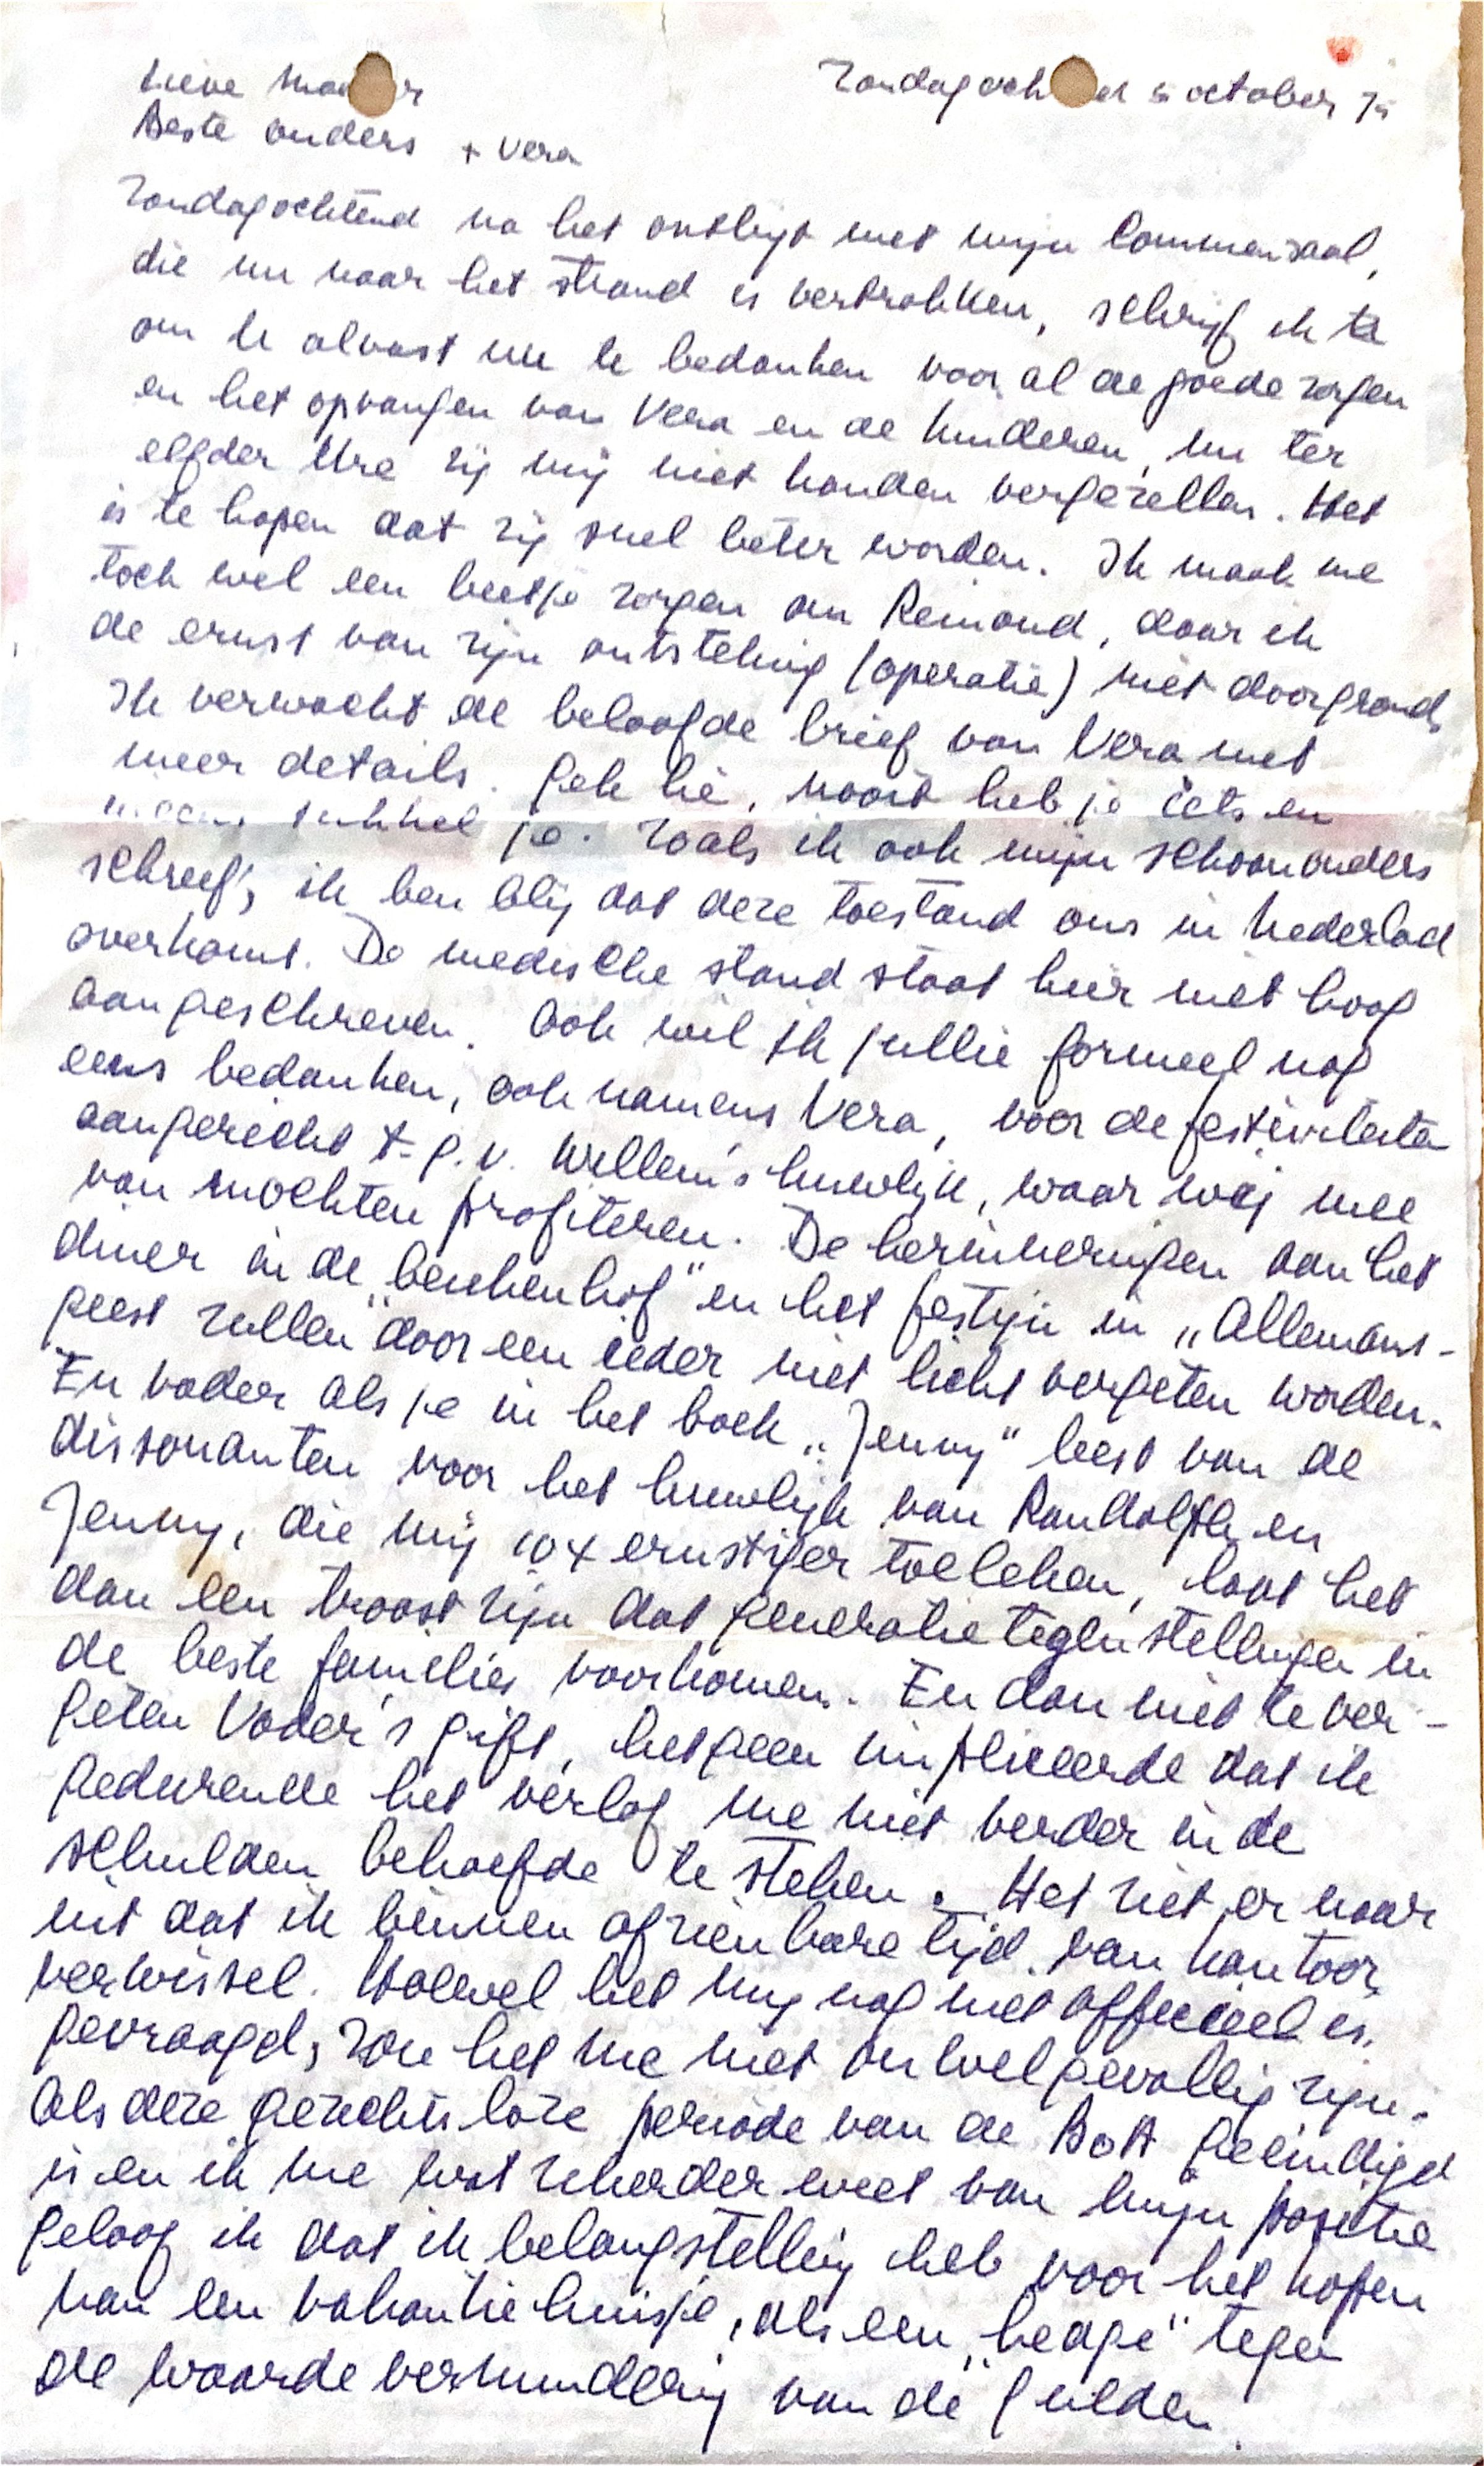 Lieve
Zondag 5 october 75
Beste ouders + Vera
Zondagochtend na het ontbijt met mijn Commensaal,
die nu naar het strand is vertrokken, schrijf ik te
om te alvast nu te bedanken voor al de goede zorgen
en het opvangen van Vera en de kinderen, nu ter
elfder Ure zij mij niet konden vergezellen. Het
is te hopen dat zij snel beter worden. Ik maak me
toch wel een beetje zorgen om Reinoud, daar ik
de ernst van zijn ontsteking (operatie) niet doorgrond,
Ik verwacht de beloofde brief van Vera met
meer details. Gek hè, nooit heb je iets en
je. Zoals ik ook mijn schoonouders
schreef, ik ben blij dat deze toestand ons in Nederlad
overkomt. De medische stand staat hier niet hoog
aangeschreven. Ook wil ik jullie formeel nog
eens bedanken, ook namens Vera, voor de festiviteite
aangericht t.g.v. Willem's huwelijk, waar wij mee
van mochten profiteren. De herinneringen aan het
diner in de „berkenhof" en het festijn in „Allemans-
geest zullen" door een ieder niet licht vergeten worden.
En vader als je in het boek „Jenny" leest van de
dissonanten voor het huwelijk van Randolph en
Jenny, die mij 10x ernstiger toeleken, laat het
dan een troost zijn dat generatietegenstellingen in
de beste families voorkomen. En dan niet te ver-
geten Vader's gift, hetgeen impliceerde dat ik
gedurende het verlof me niet verder in de
schulden behoefde te steken. Het ziet er naar
uit dat ik binnen afzienbare tijd van kantoor
verwissel. Hoewel het mij nog niet officieel is
gevraagd, zou het me niet onwelgevallig zijn.
Als deze gezichtsloze periode van de BoA geeindigd
is en ik me wat zekerder weet van mijn positie
geloof ik dat ik belangstelling heb voor het kopen
van een vakantiehuisje, als een „hedge" tegen
de waardevermindering van de gulden.